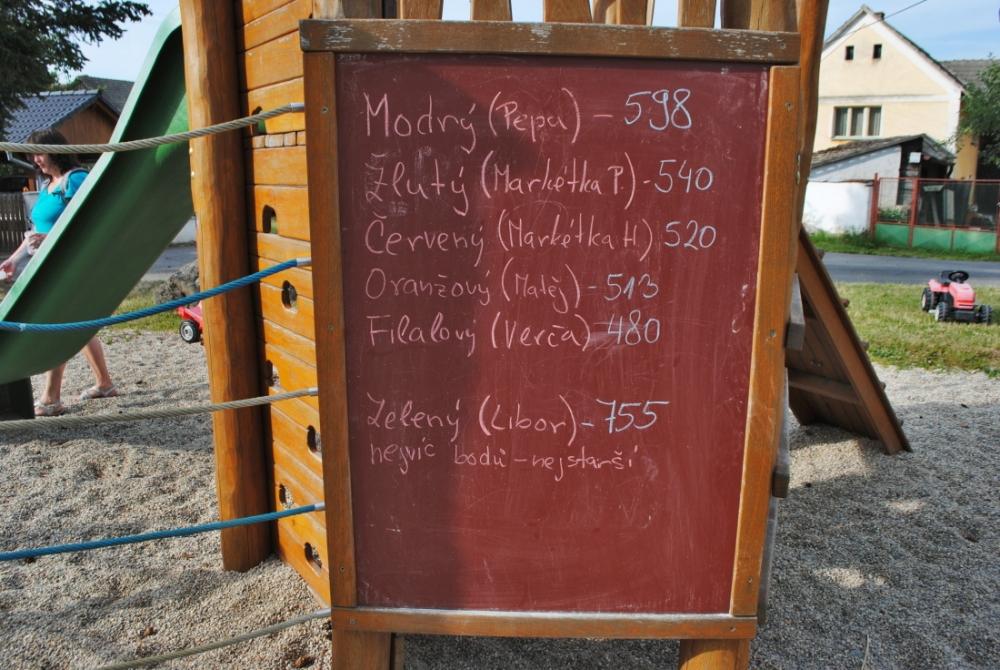 Modrý (Pepa) - 598
Žlutý (Markétka P.) - 540
Červený (Markétka H.) 520
Oranžový (Matěj) - 513
Filalový (Verča) - 480
Zelený (Libor) - 755
nejvíc bodů - nejstarší